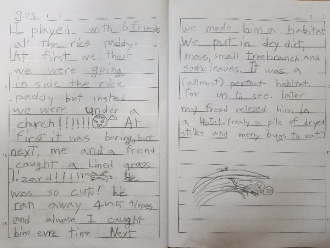 I played with 6 friends
at the rice paddy.
At first we that
we were going
in side the rice
paddy but insted
we were under a
church!!!!!! At
first it was boring, but
next, me and a friend
caught a Lined grass
lizard!!!!!! he
was so cute! he
ran away 4 or 5 times
and always I caught
him evre time Next
we made him a habitat
We put in dry dirt,
moss, small treebranch, and
some leaves. It was a
(allmost) perfect habitat
for us to see. later
my friend relesed him in
a Hotel. (realy a pile of dryed
stiks and meny bugs to eat)